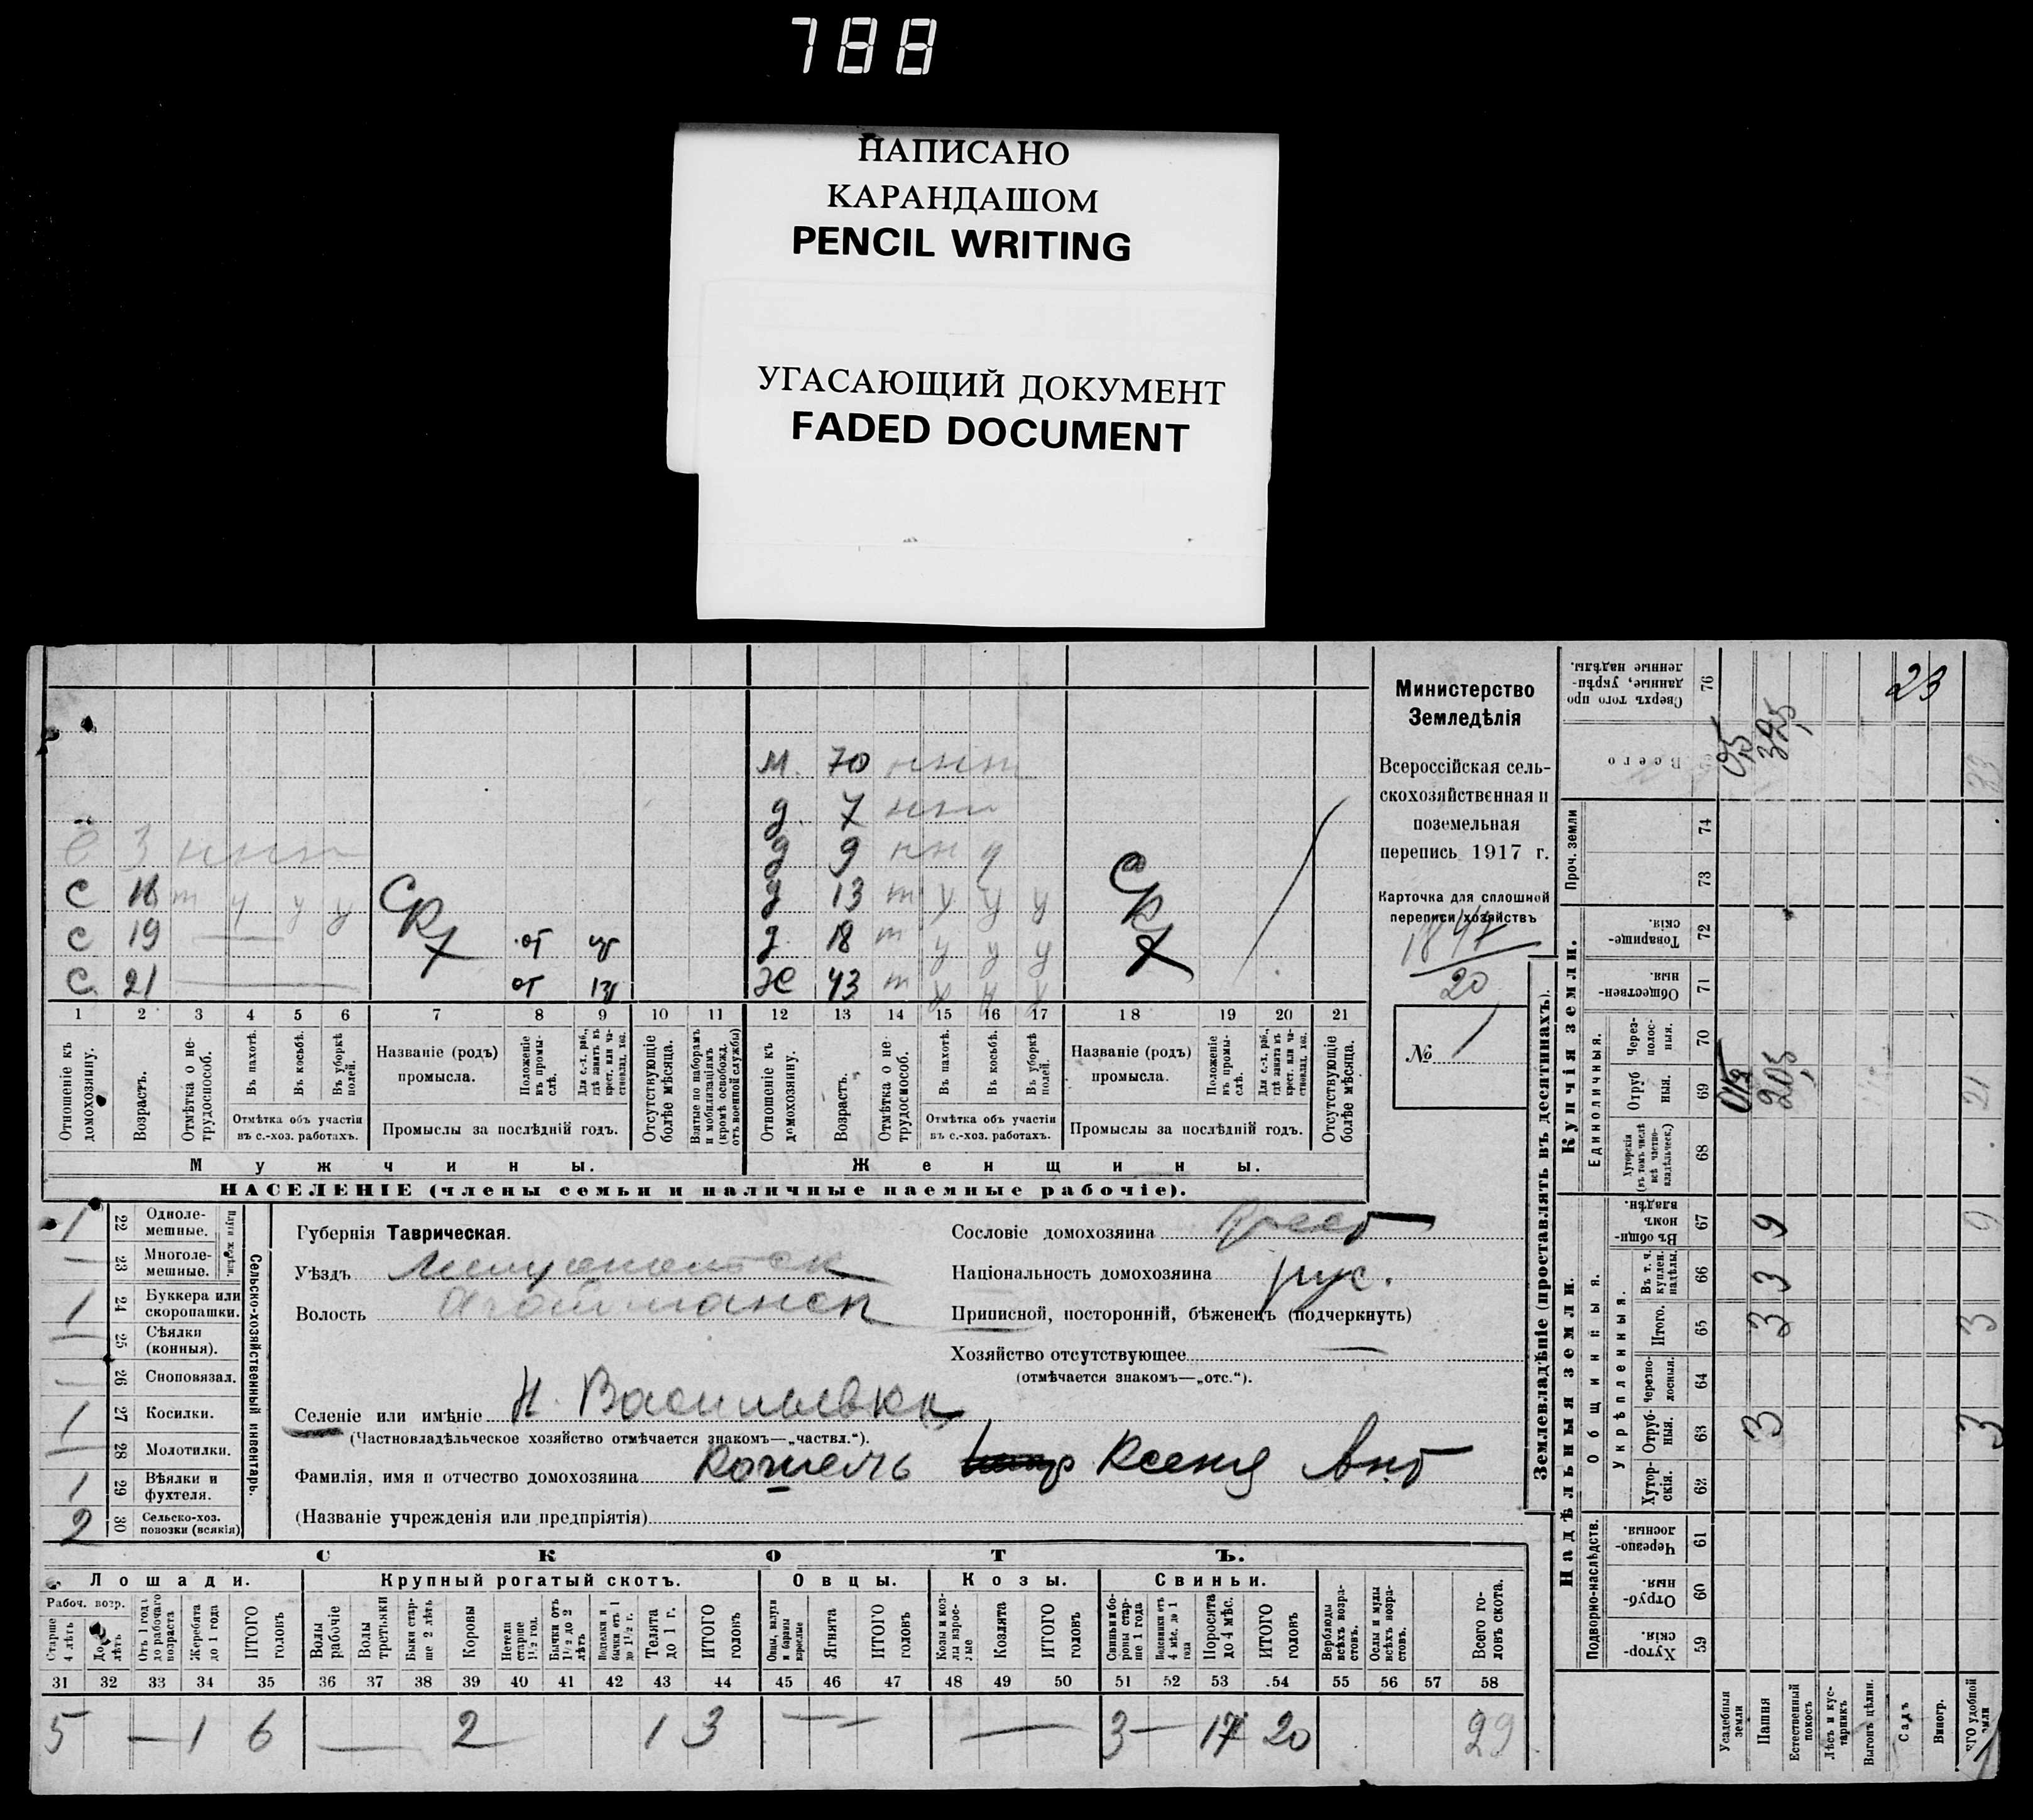 788
НАПИСАНО
КАРАНДАШОМ
PENCIL WRITING
УГАСАЮЩИЙ ДОКУМЕНТ
FADED DOCUMENT
Министерство
Земледѣлія
Всероссійская сель-
скохозяйственная и
поземельная
перепись 1917 г.
Карточка для сплошной
переписи хозяйствъ
20
№ 1
м. 70 ннт
д. 7 ннт
с 3 ннт
д 9 нн у
с 18 т у у у СКХ
д 13 т у у у СКХ
с 19 — от
д. 18 т у у у
с. 21 — от
ж 43 т
1 2 3 4 5 6 7 8 9 10 11 12 13 14 15 16 17 18 19 20 21
Отношеніе къ домохозяину.
Возрастъ.
Отмѣтка о не-трудоспособ.
Въ пахотѣ.
Въ косьбѣ.
Въ уборкѣ полей.
Отмѣтка объ участіи
въ с.-хоз. работахъ.
Названіе (родъ)
промысла.
Положеніе въ промы-слѣ.
Для с.-х. раб., гдѣ занятъ въ крест. или ча-стновлад. хоз.
Промыслы за послѣдній годъ.
Отсутствующіе болѣе мѣсяца.
Взятые по наборамъ и мобилизаціямъ (кромѣ освобожд. отъ военной службы)
Отношеніе къ домохозяину.
Возрастъ.
Отмѣтка о не-трудоспособ.
Въ пахотѣ.
Въ косьбѣ.
Въ уборкѣ полей.
Отмѣтка объ участіи
въ с.-хоз. работахъ.
Названіе (родъ)
промысла.
Положеніе въ промы-слѣ.
Для с.-х. раб., гдѣ занята въ крест. или ча-стновлад. хоз.
Промыслы за послѣдній годъ.
Отсутствующіе болѣе мѣсяца.
Мужчины.
Женщины.
НАСЕЛЕНІЕ (члены семьи и наличные наемные рабочіе).
1 22 Однолемешные.
— 23 Многолемешные.
1 24 Буккера или скоропашки.
— 25 Сѣялки (конныя).
— 26 Сноповязал.
1 27 Косилки.
— 28 Молотилки.
1 29 Вѣялки и фухтеля.
2 30 Сельско-хоз. повозки (всякія)
Сельско-хозяйственный инвентарь.
Губернія Таврическая.
Уѣздъ
Волость
Селеніе или имѣніе Н. Васильевка
(Частновладѣльческое хозяйство отмѣчается знакомъ—„частвл.“).
Фамилія, имя и отчество домохозяина Кошель Ксенія Ант
(Названіе учрежденія или предпріятія)
Сословіе домохозяина Крест
Національность домохозяина рус.
Приписной, посторонній, бѣженецъ (подчеркнуть)
Хозяйство отсутствующее —
(отмѣчается знакомъ—„отс.“).
СКОТЪ.
Лошади. Крупный рогатый скотъ. Овцы. Козы. Свиньи.
Рабоч. возр.
Старше 4 лѣтъ
До 4 лѣтъ
Отъ 1 года до рабочаго возраста
Жеребята до 1 года
ИТОГО головъ
Волы рабочіе
Волы третьяки
Быки стар-ше 2 лѣтъ
Коровы
Нетели старше 1½ год.
Бычки отъ 1½ до 2 лѣтъ
Телки и бычки отъ 1 до 1½ г.
Телята до 1 г.
ИТОГО головъ
Овцы, валухи и бараны взрослые
Ягнята
ИТОГО головъ
Козы и коз-лы взрос-лые
Козлята
ИТОГО головъ
Свиньи и бо-ровы стар-ше 1 года
Подсвинки отъ 4 мѣс. до 1 года
Поросята до 4 мѣс.
ИТОГО головъ
Верблюды всѣхъ возра-стовъ.
Ослы и мулы всѣхъ возра-стовъ.
Всего го-ловъ скота.
31 32 33 34 35 36 37 38 39 40 41 42 43 44 45 46 47 48 49 50 51 52 53 54 55 56 57 58
5 — 1 6 — 2 1 3 — — — 3 — 17 20 29
Землевладѣніе (проставлять въ десятинахъ).
Надѣльныя земли.
Купчія земли.
Проч. земли
Подворно-наслѣдств.
Общинныя.
Укрѣпленныя.
Единоличныя.
Хутор-скія. 59
Отруб-ныя. 60
Черезпо-лосныя. 61
Хутор-скія. 62
Отруб-ныя. 63
Черезпо-лосныя. 64
Итого. 65
Въ т. ч. куплен. надѣлы. 66
Въ общин-номъ владѣн. 67
Хуторскія (въ томъ числѣ всѣ частно-владѣльческ.) 68
Отруб ныя. 69
Через-полос-ныя. 70
Обществен-ныя. 71
Товарище-скія. 72
73
74
Всего
Сверхъ того про данные, укрѣп-ленные надѣлы. 76
Усадебныя земли
Пашня 3 3 3 9 20,5
Естественный покосъ
Лѣсъ и кус-тарникъ
Выгонъ цѣлин.
Садъ
Виногр.
3 3 9 21 33
23